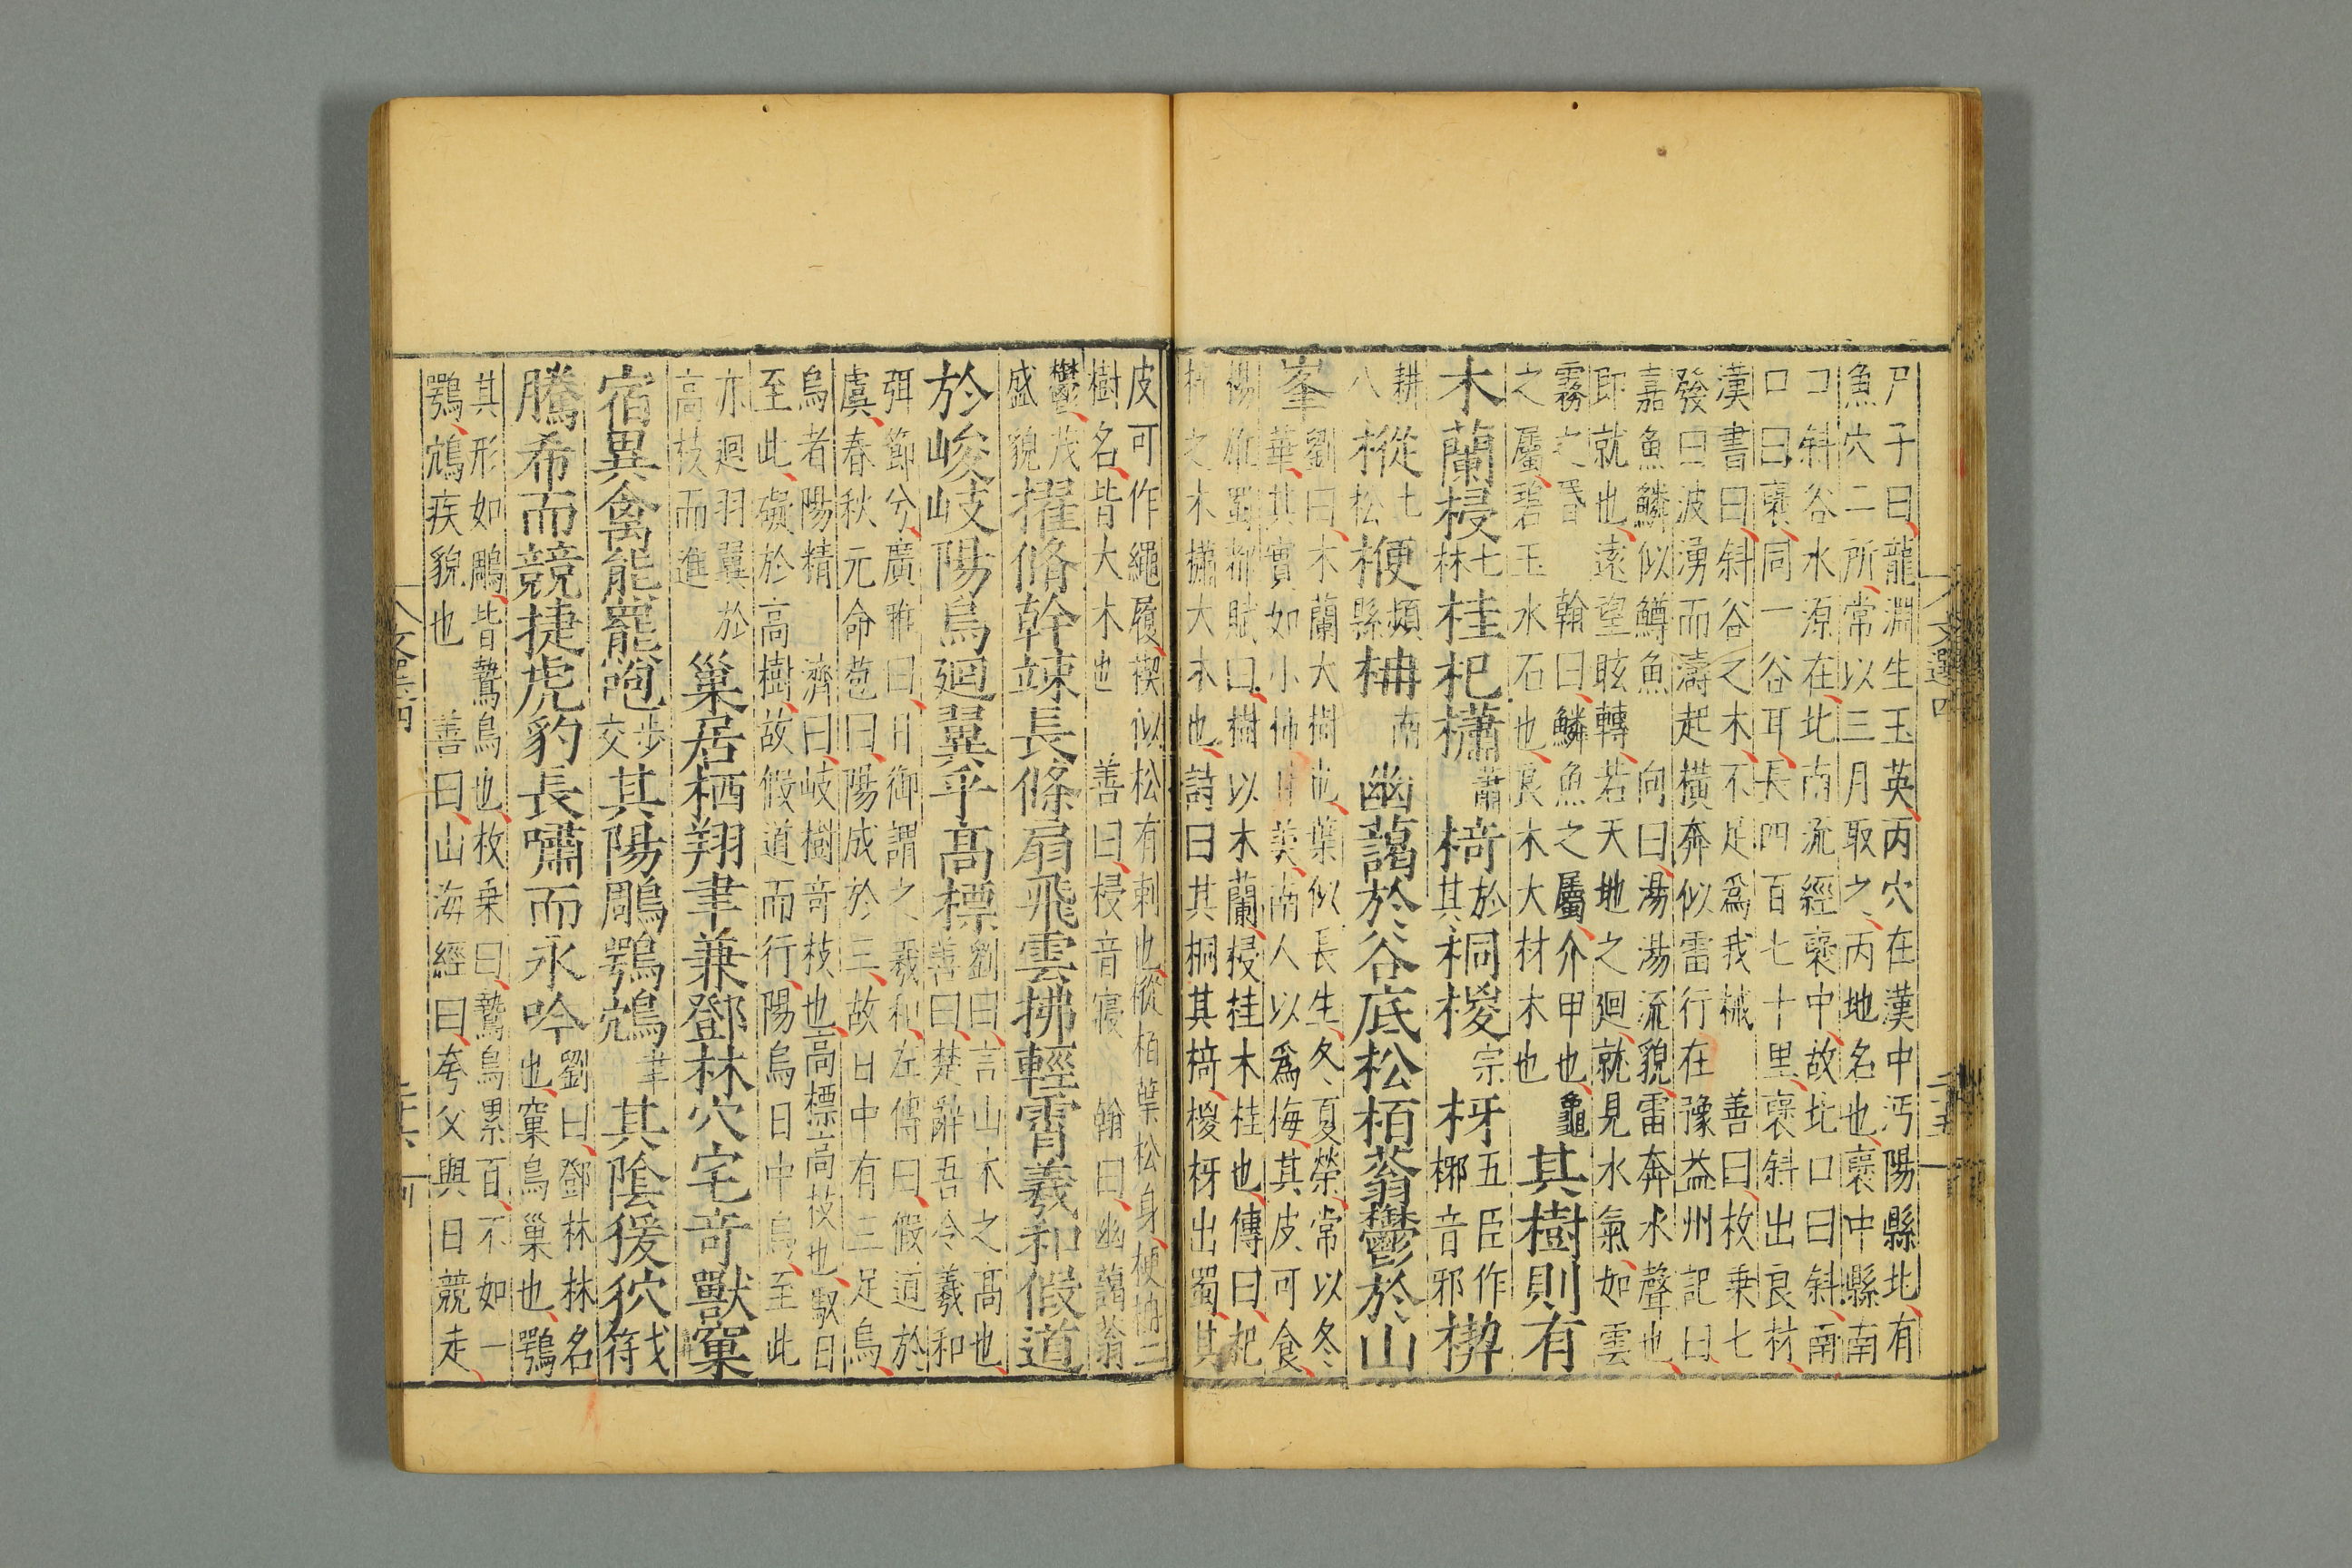 尸子曰龍淵生玉英丙穴在漢中沔陽縣北有
魚穴二所常以三月取之丙地名也襃中縣南
口斜谷水源在北南流經襃中故北口曰斜南
口曰襃同一谷耳長四百七十里襃斜出良材
漢書曰斜谷之木不足爲我械 善曰枚乗七
發曰波湧而濤起橫奔似雷行在豫益州記曰
嘉魚鱗似鱒魚 向曰湯湯流貌雷奔水聲也
即就也遠望眩轉若天地之廻就見水氣如雲
霧之昏 翰曰鱗魚之屬介甲也龜
之屬碧玉水石也良木大材木也
其樹則有
木蘭梫
七
林
桂杞櫹
蕭
椅
於
其
桐椶
宗
枒
五臣作
梛音邪
楔
耕
八
樅
七
松
楩
頻
縣
柟
南
幽藹於谷底松栢蓊鬱於山
峯
劉曰木蘭大樹也葉似長生冬夏榮常以冬
華其實如小柿甘美南人以爲梅其皮可食
楊雄蜀都賦曰樹以木蘭梫桂木桂也傳曰杞
梓之木櫹大木也詩曰其桐其椅椶枒出蜀其
皮可作繩履楔似松有刺也樅栢葉松身楩柟二
樹名皆大木也 善曰梫音寑 翰曰幽藹蓊
鬱茂
盛貌
擢脩幹竦長條扇飛雲拂輕霄羲和假道
於峻岐陽烏廻翼乎高標
劉曰言山木之高也
善曰楚辭吾令羲和
弭節兮廣雅曰日御謂之羲和左傳曰假道於
虞春秋元命苞曰陽成於三故日中有三足烏
烏者陽精 濟曰岐樹竒枝也高標高枝也馭日
至此礙於高樹故假道而行陽烏日中烏至此
亦廻羽翼於
高枝而進
巢居栖翔聿兼鄧林穴宅竒獸窠
宿異禽熊羆咆
步
交
其陽鵰鶚鴥
聿
其陰猨狖
騰希而競捷虎豹長嘯而永吟
劉曰鄧林林名
也窠鳥巢也鶚
其形如鵰皆鷙鳥也枚乗曰鷙鳥累百不如一
鶚鴥疾貌也 善曰山海經曰夸父與日競走